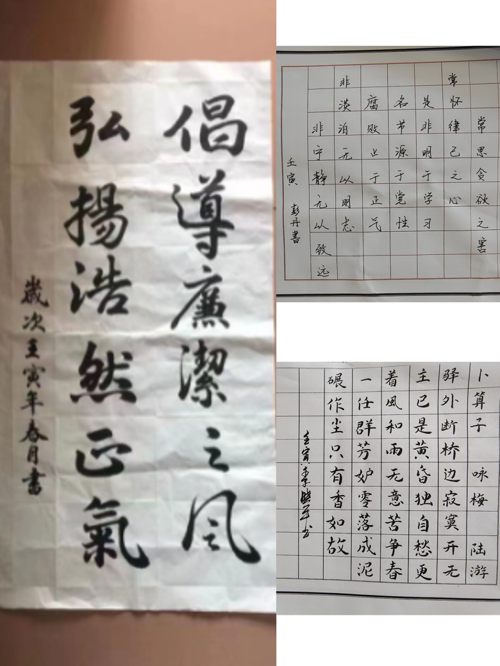 倡導廉潔之風
弘揚浩然正氣
歲次壬寅年春月書
常思贪欲之害
常怀律己之心
是非明于学习
名节源于党性
腐败止于正气
非淡泊无以明志
非宁静无以致远
壬寅 彭丹书
卜算子 咏梅 陆游
驿外断桥边寂寞开无
主已是黄昏独自愁更
着风和雨无意苦争春
一任群芳妒零落成泥
碾作尘只有香如故
壬寅